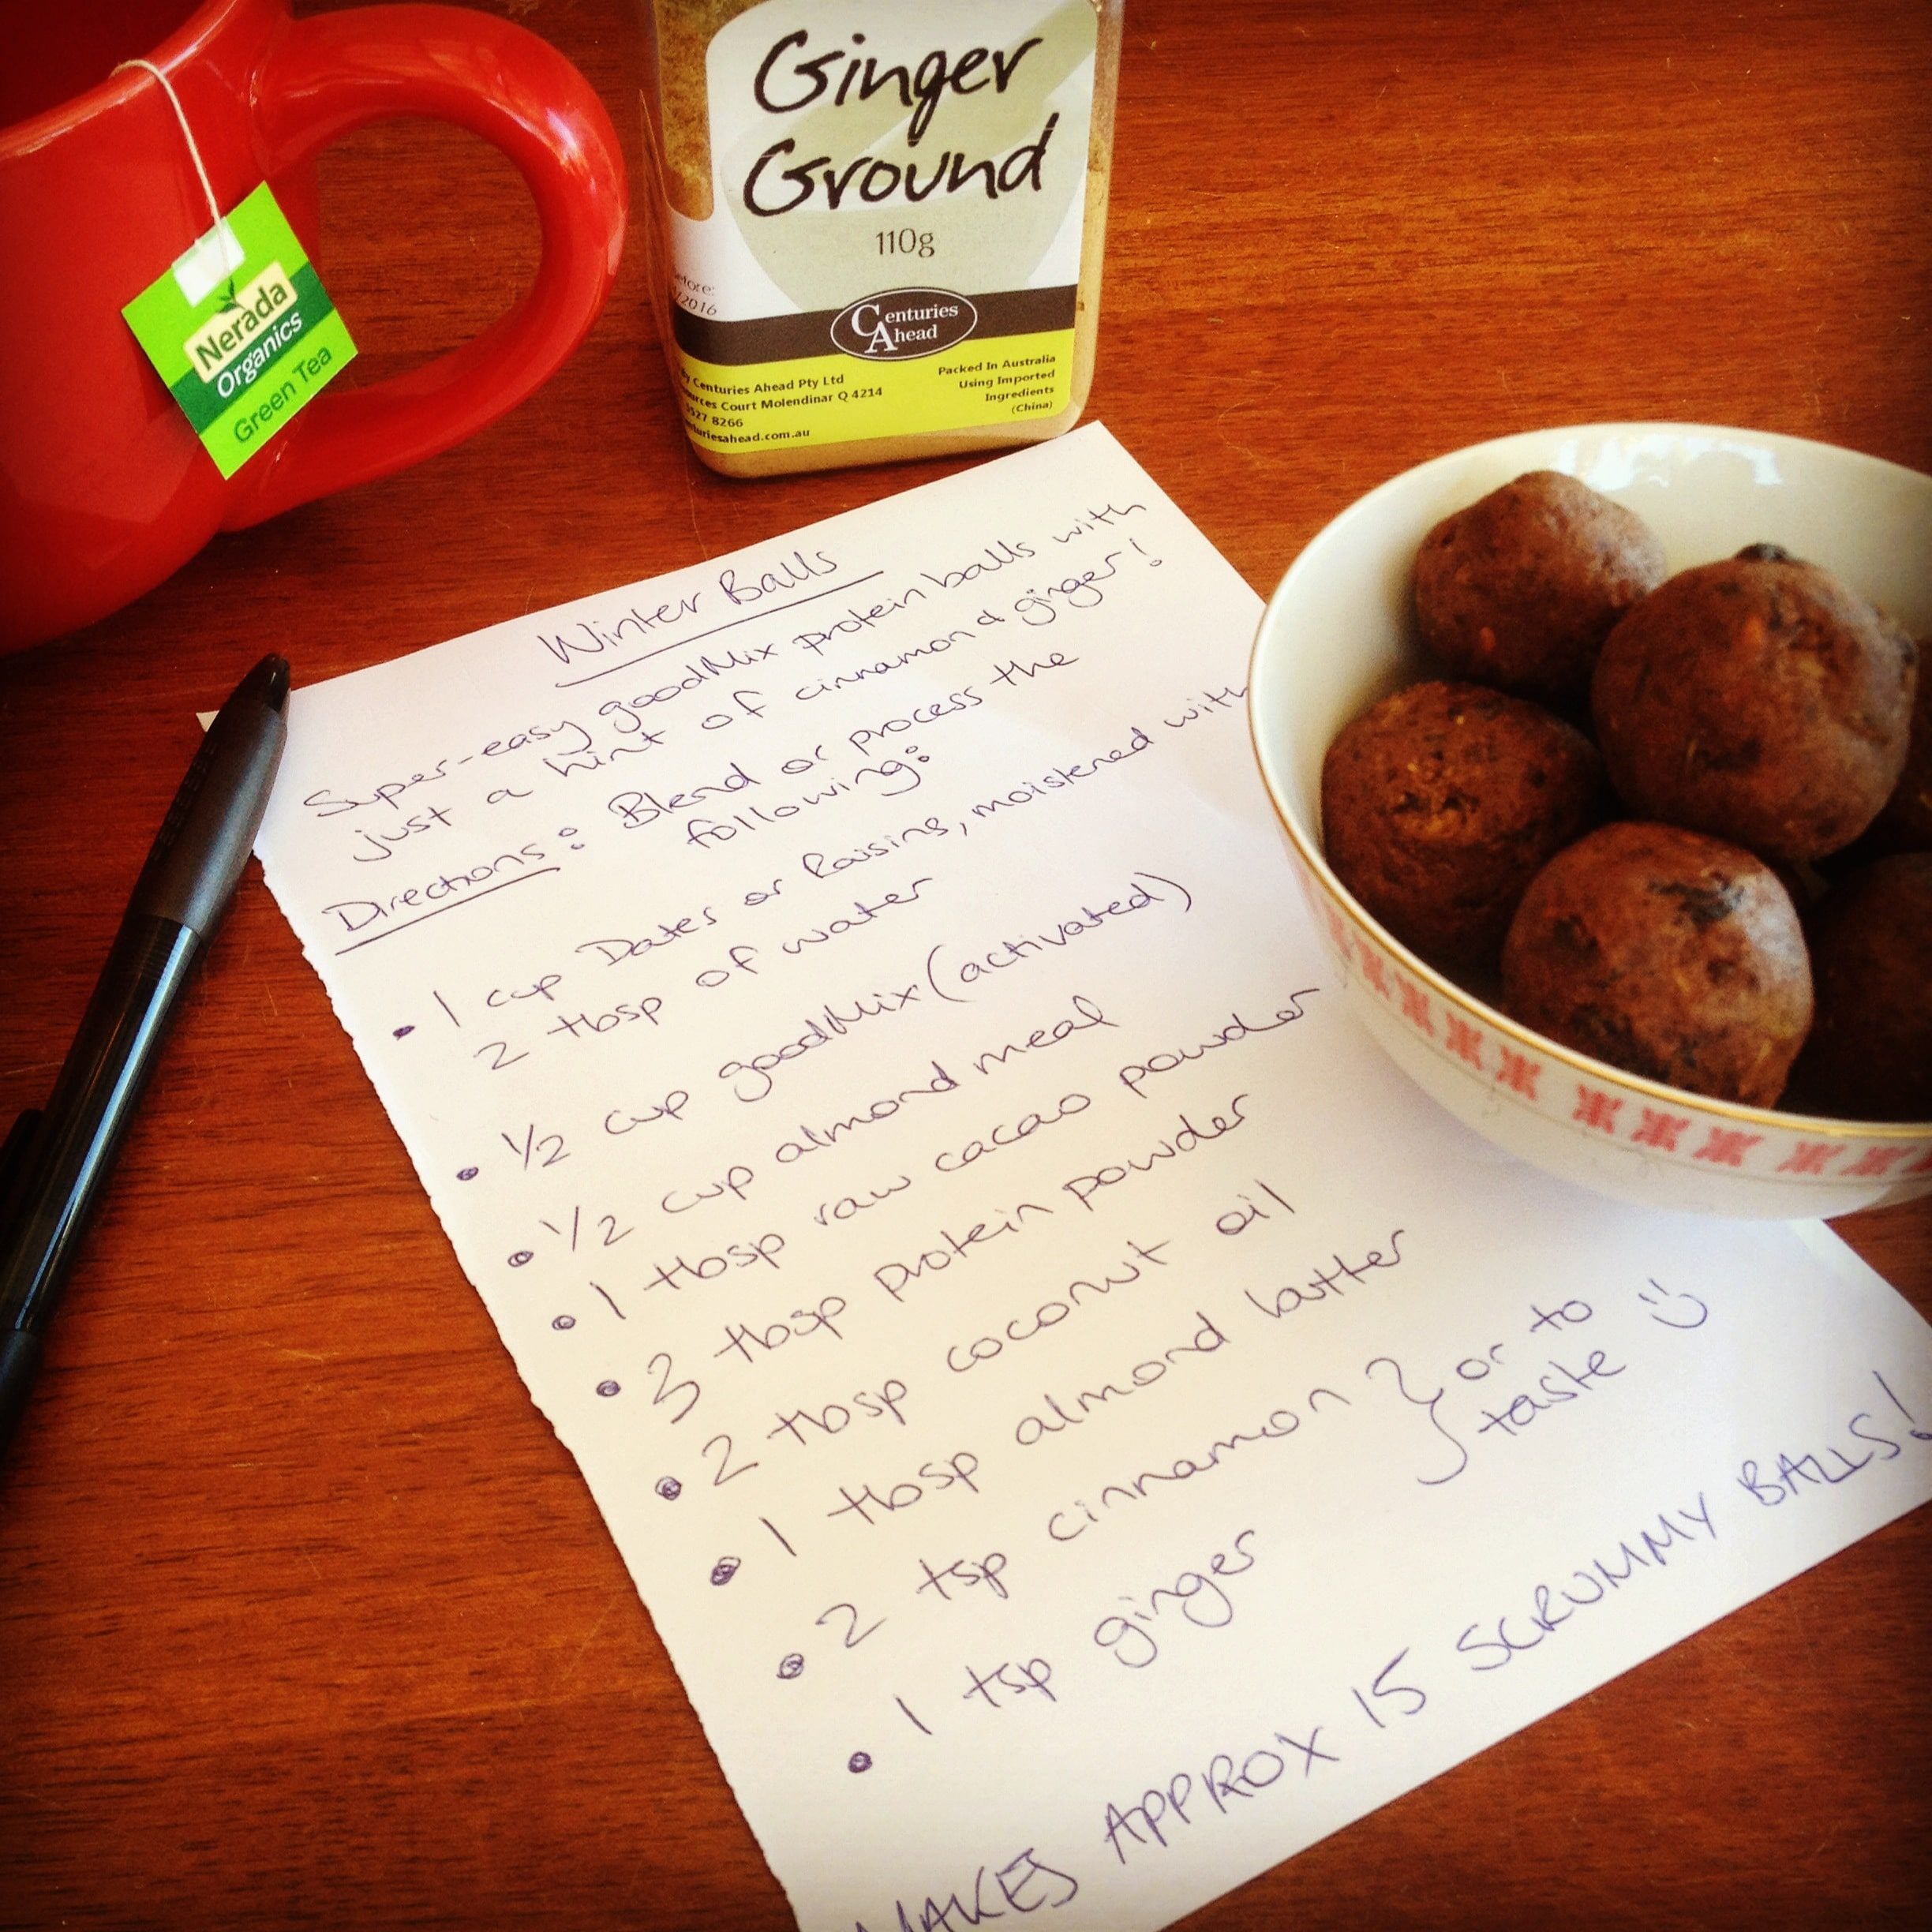 Nerada
Organics
Green Tea
Ginger
Ground
110g
/2016
Centuries
Ahead
Centuries Ahead Pty Ltd
Court Molendinar Q 4214
8266
Packed In Australia
Using Imported
Ingredients
(China)
Winter Balls
Super-easy goodMix protein balls with
just a hint of cinnamon & ginger!
Directions: Blend or process the
following:
• 1 cup Dates or Raisins, moistened with
2 tbsp of water
• 1/2 cup goodMix (activated)
• 1/2 cup almond meal
• 1 tbsp raw cacao powder
• 3 tbsp protein powder
• 2 tbsp coconut oil
• 1 tbsp almond butter
• 2 tsp cinnamon } or to
taste
• 1 tsp ginger
MAKES APPROX 15 SCRUMMY BALLS!